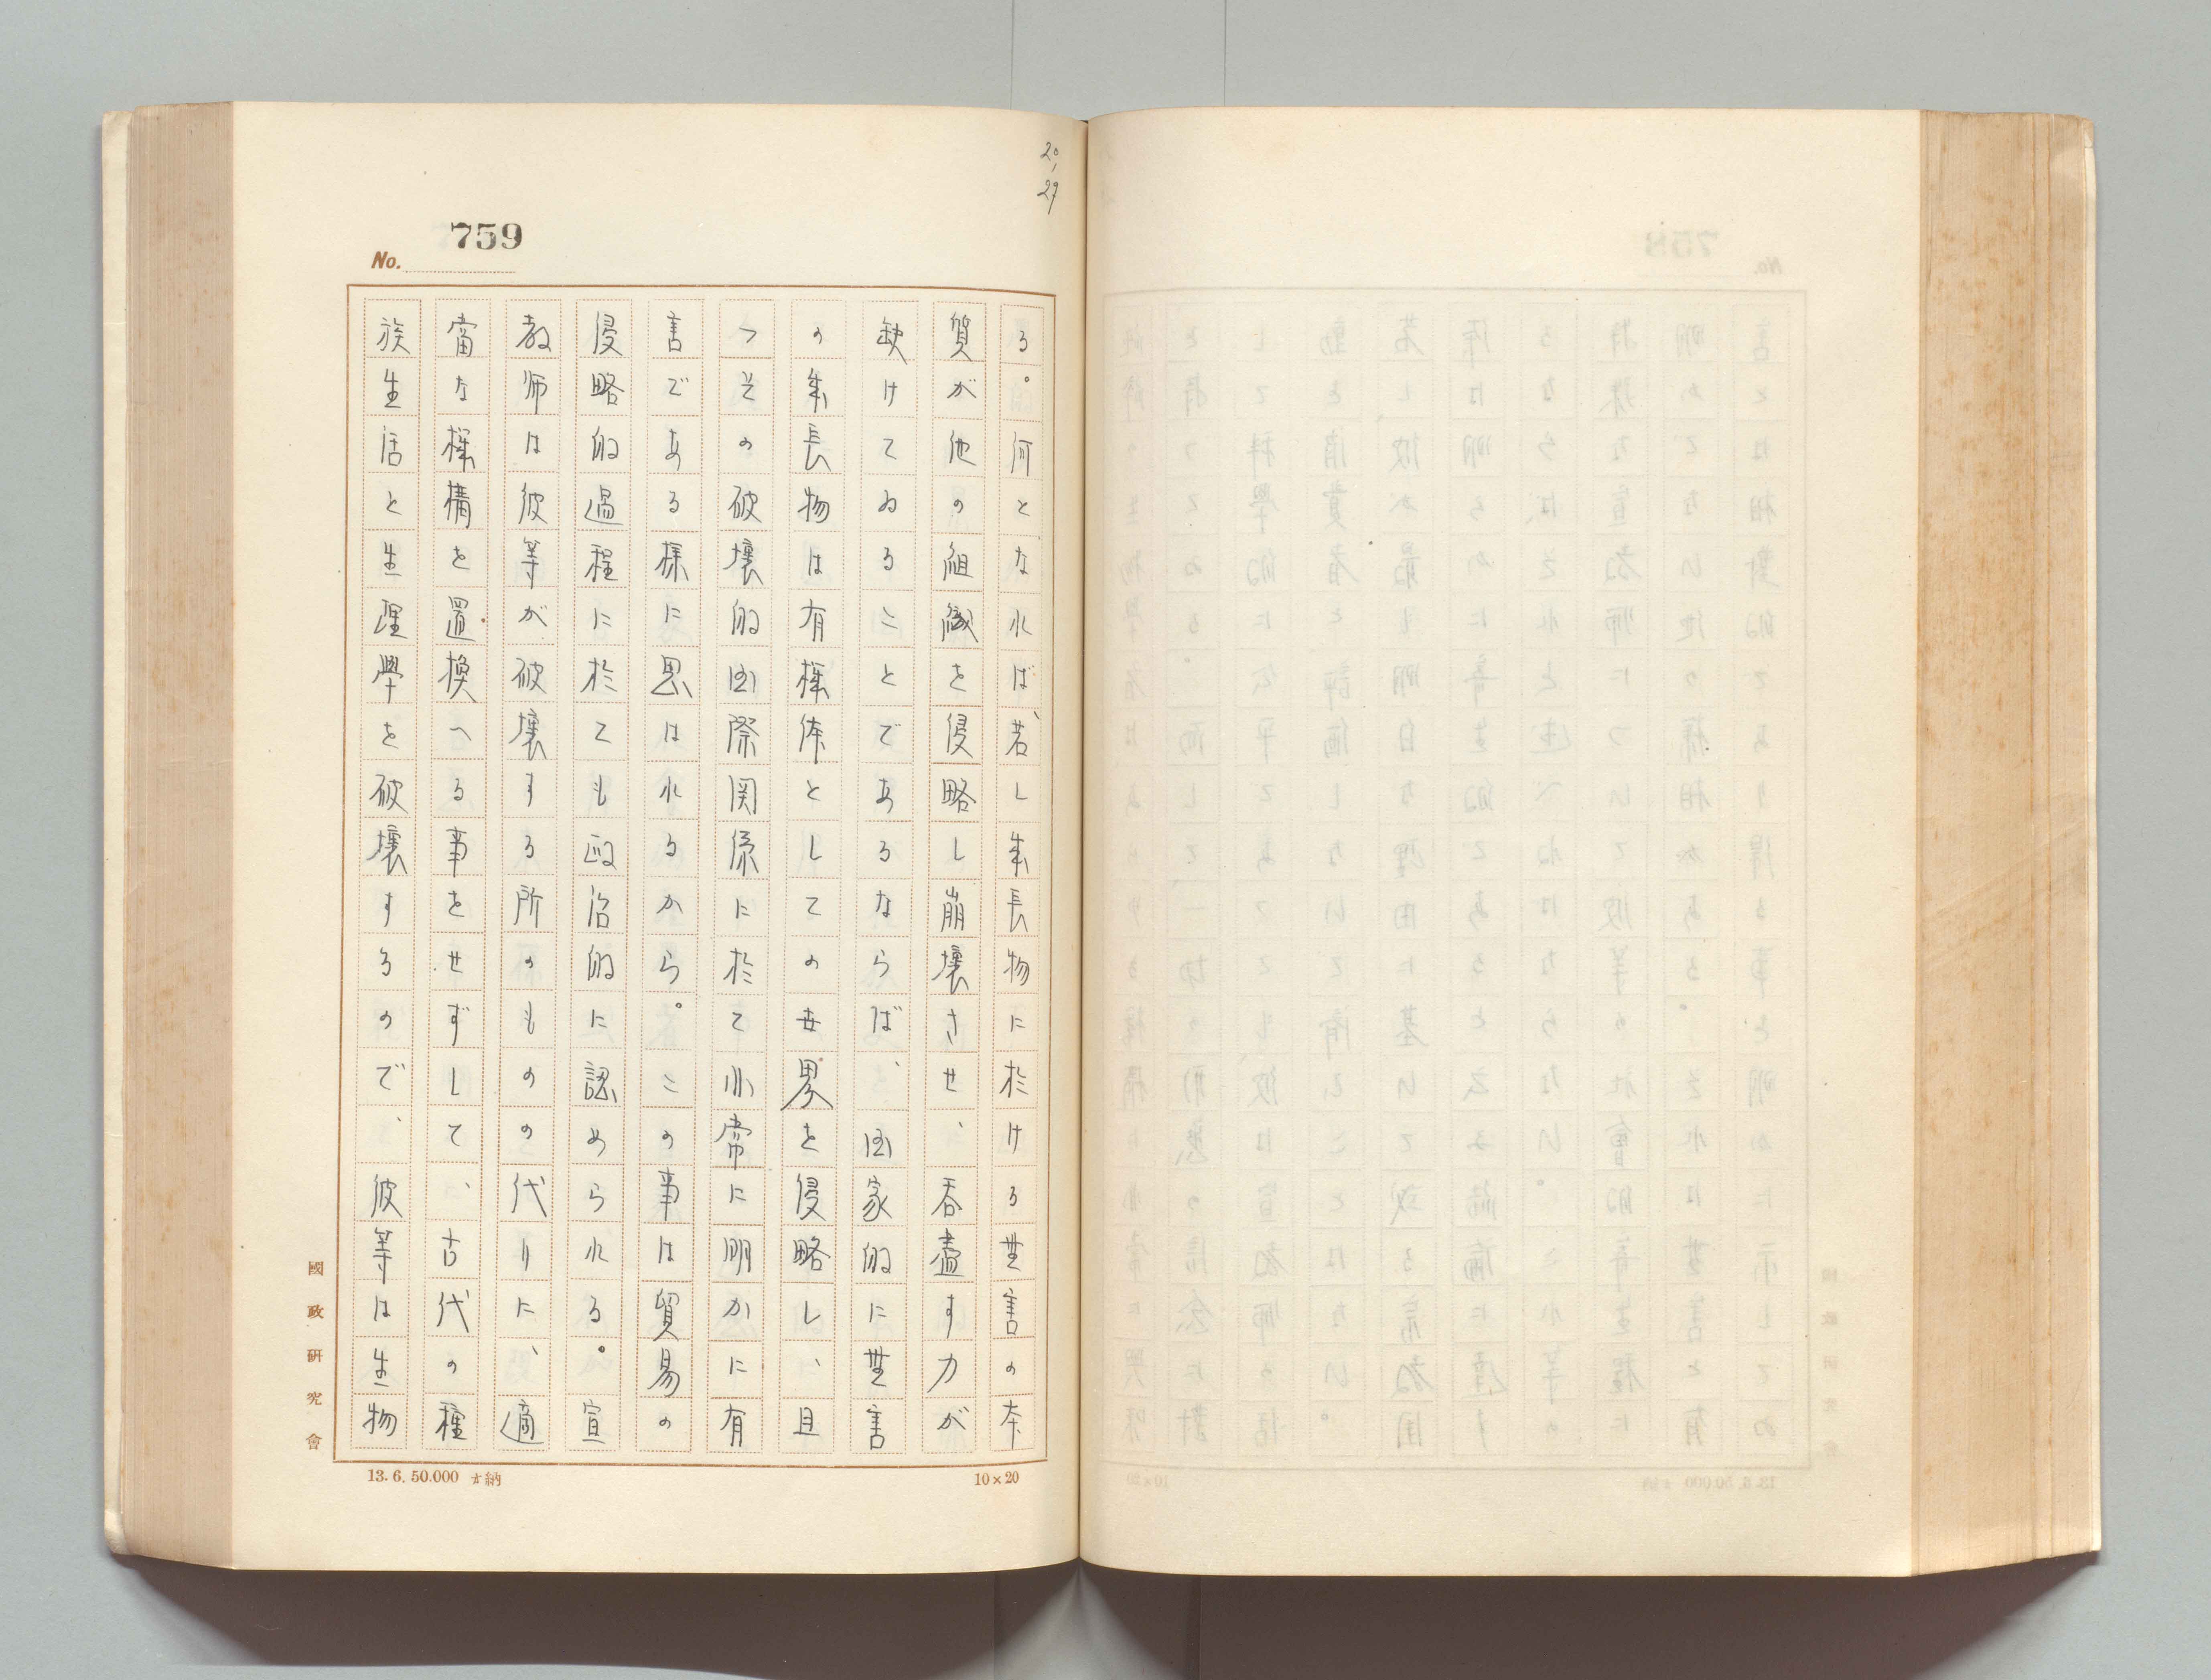 20,
29
759
No.
る。何となれば、若し成長物に於ける無害の本
質が他の組織を侵略し崩壞させ、呑盡す力が
缺けてゐることであるならば、国家的に無害
の成長物は有機体としての世界を侵略し、且
つその破壞的国際関係に於て非常に明かに有
害である様に思はれるから。この事は貿易の
侵略的過程に於ても政治的に認められる。宣
教師は彼等が破壞する所のものの代りに、適
當な機構を置換へる事をせずして、古代の種
族生活と生理學を破壞するので、彼等は生物
國政研究會
13.6.50.000 納
10×20